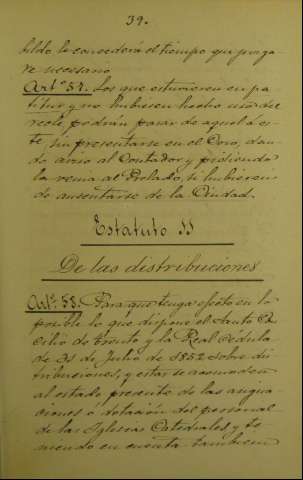 39.
bildo le concederá el tiempo que juzga-
re necesario.
Artº 57. Los que estuvieren en pa-
titur y no hubiesen hecho uso del
recle podrán pasar de aquel á es-
te, sin presentarse en el Coro, dan-
do aviso al Contador y pidiendo
la venia al Prelado, si hubiesen
de ausentarse de la Ciudad.
Estatuto 11
De las distribuciones
Artº 58. Para que tenga efecto en lo
posible lo que dispone el Santo Con-
cilio de Trento y la Real Cédula
de 31 de Julio de 1852 sobre dis-
tribuciones, y estas se acomoden
al estado presente de las asigna-
ciones ó dotación del personal
de las Iglesias Catedrales y te-
niendo en cuenta tambien